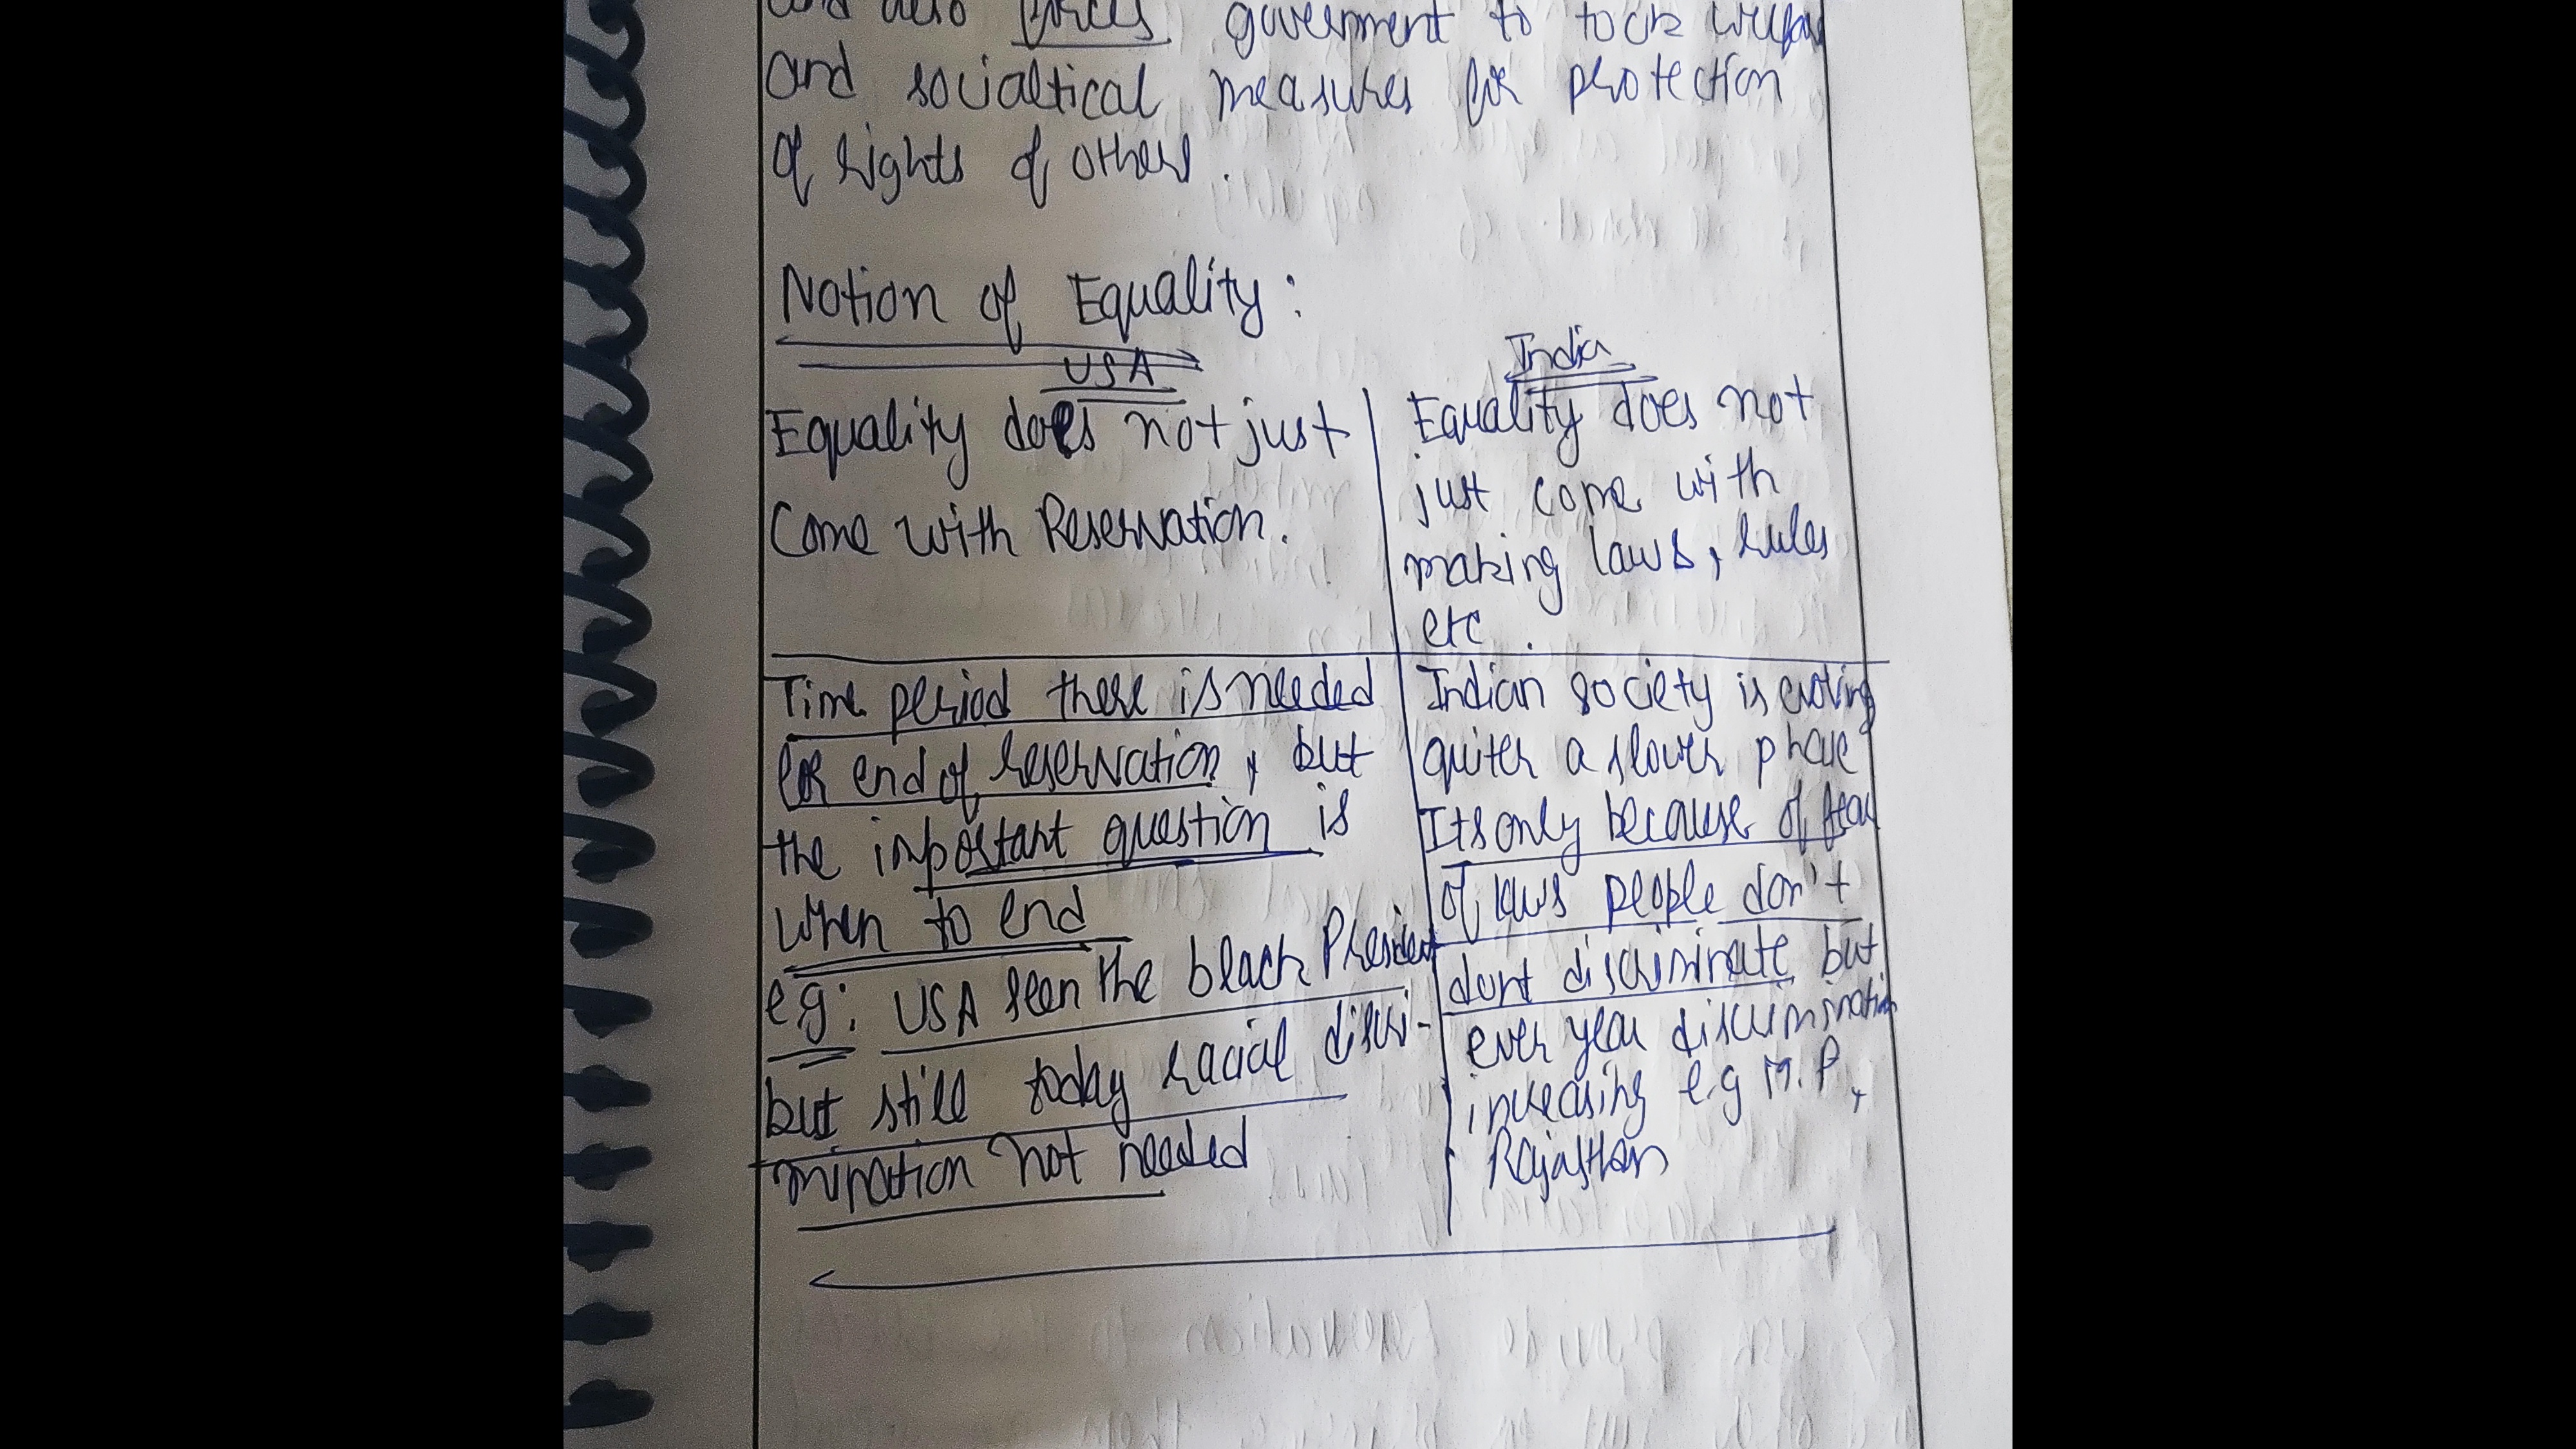 and also forces government to took welfare
and socialtical measures for protection
of rights of others.
Notion of Equality:
USA
Equality does not just
Come with Reservation.
Time period there is needed
for end of reservation, but
the important question is
when to end
eg: USA seen the black President
but still today racial discri-
mination not needed
India
Equality does not
just come with
making laws, rules
etc.
Indian society is
quiter a slower phase
Its only because of fear
of laws people don't
dont discriminate but
ever year discrimination
increasing e.g M.P,
Rajasthan